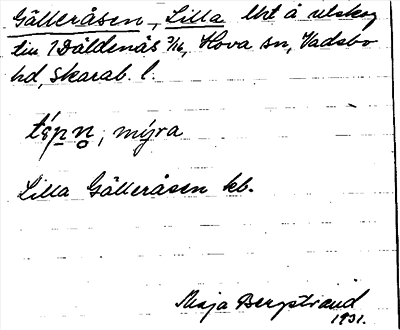 Gälleråsen, Lilla lht å utskog
till Däldenäs 7/16, Hova sn, Vadsbo
hd, Skarab. l.
tɛ́pn̥, mýra
Lilla Gälleråsen kb.
Maja Bergstrand
1931.